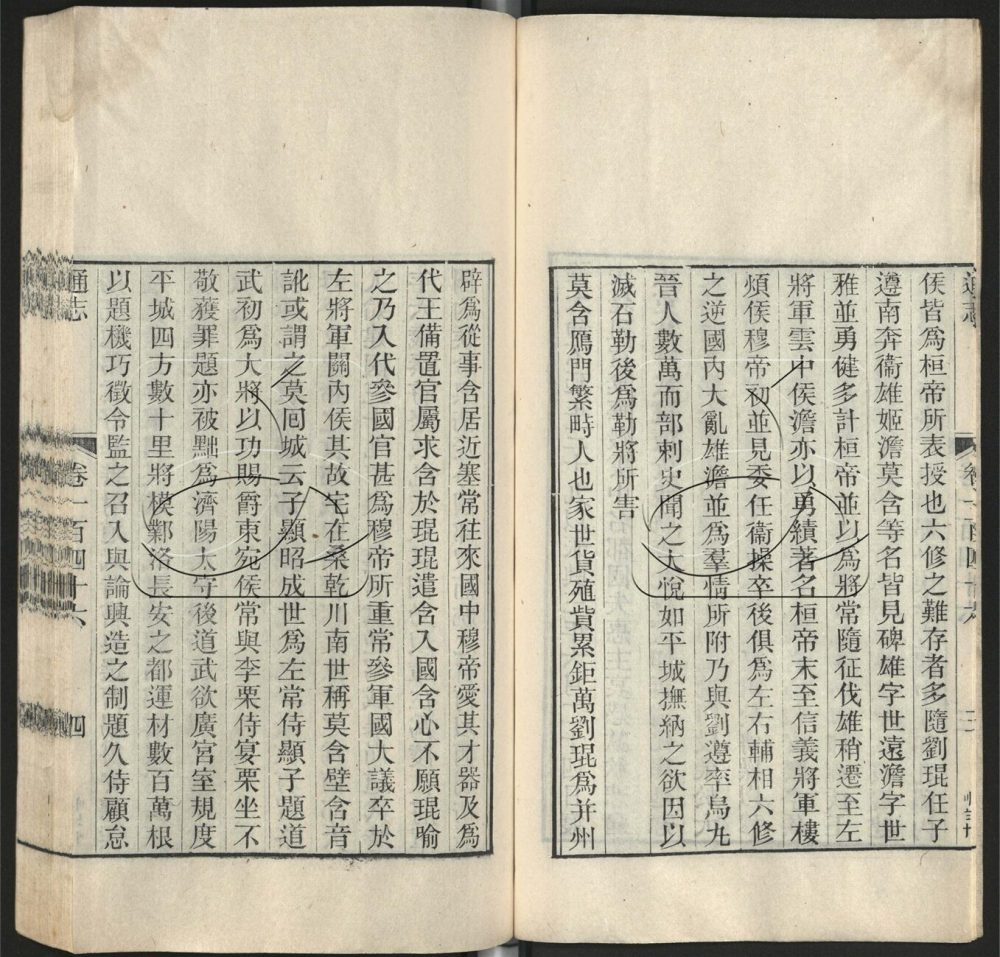 通志
侯皆爲桓帝所表授也六修之難存者多隨劉琨任子
遵南奔衞雄姬澹莫含等名皆見碑雄字世遠澹字世
雅並勇健多計桓帝並以爲將常隨征伐雄稍遷至左
將軍雲中侯澹亦以勇績著名桓帝末至信義將軍樓
煩侯穆帝初並見委任衞操卒後俱爲左右輔相六修
之逆國內大亂雄澹並爲羣情所附乃與劉遵率烏九
晉人數萬而部刺史聞之大悅如平城撫納之欲因以
滅石勒後爲勒將所害
莫含鴈門繁畤人也家世貨殖貲累鉅萬劉琨爲并州
辟爲從事含居近塞常往來國中穆帝愛其才器及爲
代王備置官屬求含於琨琨遣含入國含心不願琨喻
之乃入代參國官甚爲穆帝所重常參軍國大議卒於
左將軍關內侯其故宅在桑乾川南世稱莫含壁含音
訛或謂之莫回城云子顯昭成世爲左常侍顯子題道
武初爲大將以功賜爵東宛侯常與李栗侍宴栗坐不
敬獲罪題亦被黜爲濟陽太守後道武欲廣宮室規度
平城四方數十里將模鄴洛長安之都運材數百萬根
以題機巧徵令監之召入與論興造之制題久侍顧怠
通志
卷一百四十六
四